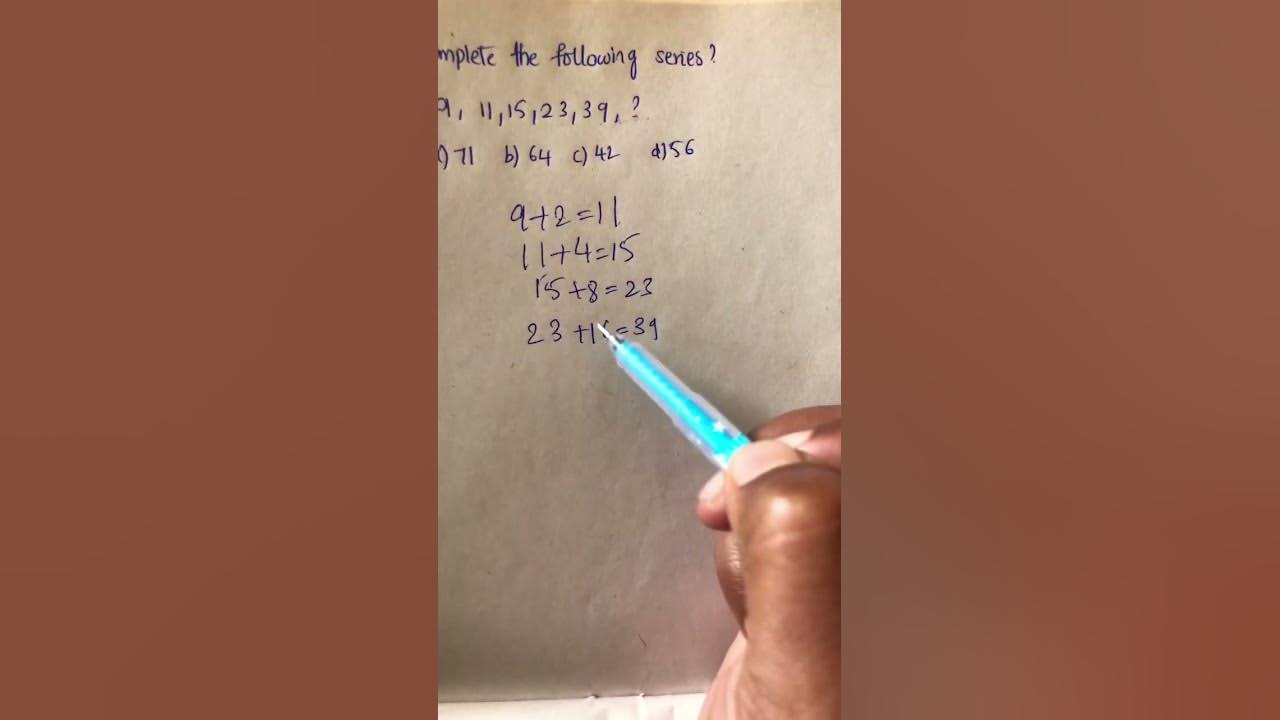 mplete the following series?
9, 11, 15, 23, 39, ?
) 71 b) 64 c) 42 d) 56
9+2=11
11+4=15
15+8=23
23+1 =39